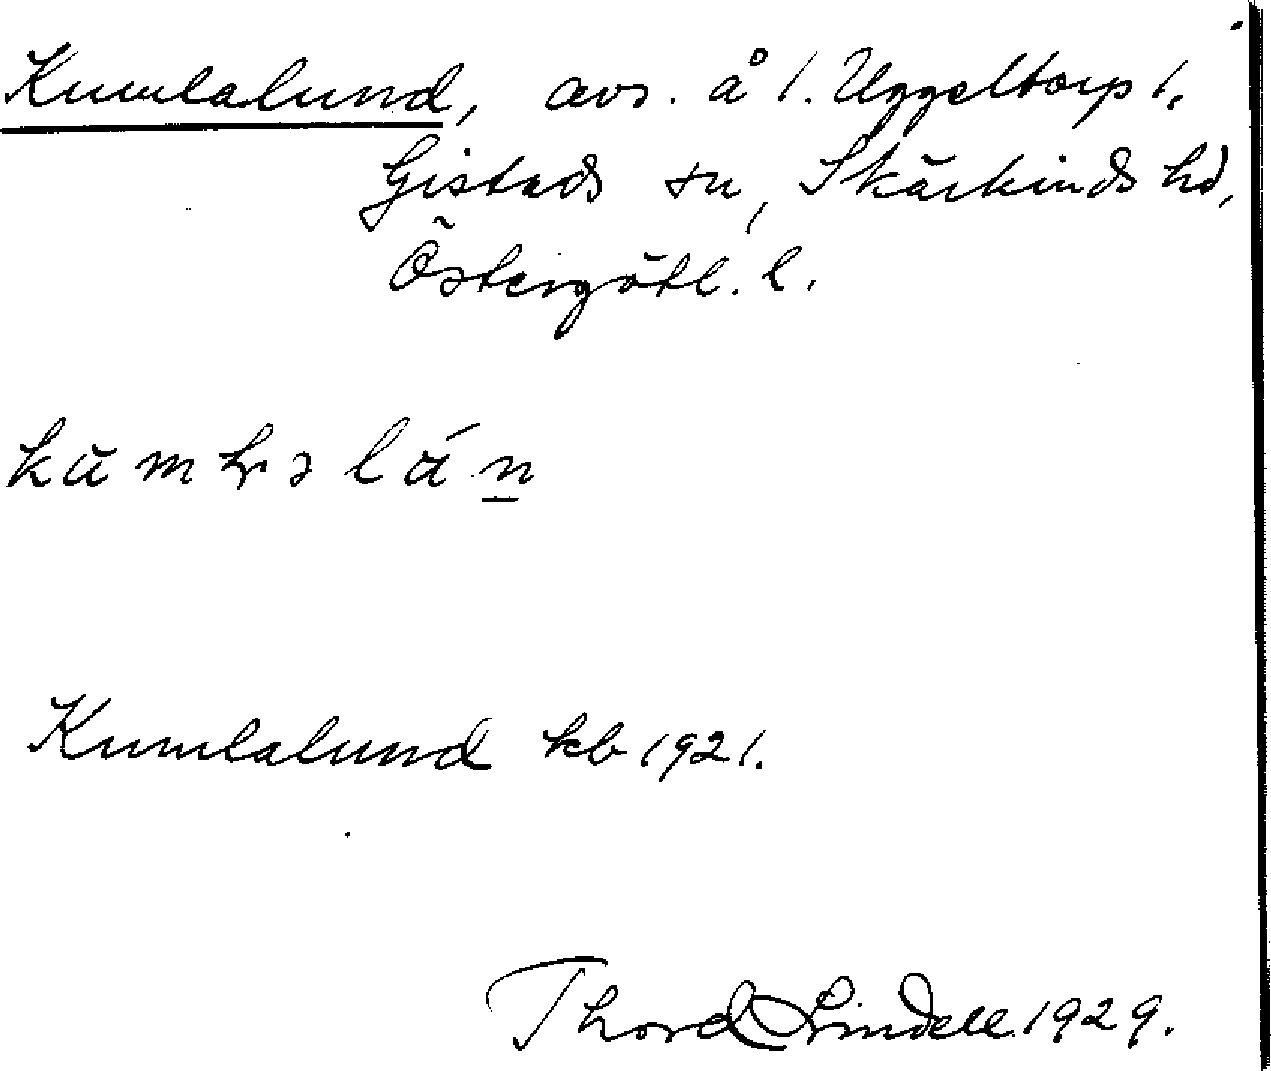 Kumlalund, avs. å 1. Uggeltorp 1,
Gistads sn, Skärkinds hd,
Östergötl. l.
Kumlalund kb 1921.
Thord Lindell 1929.